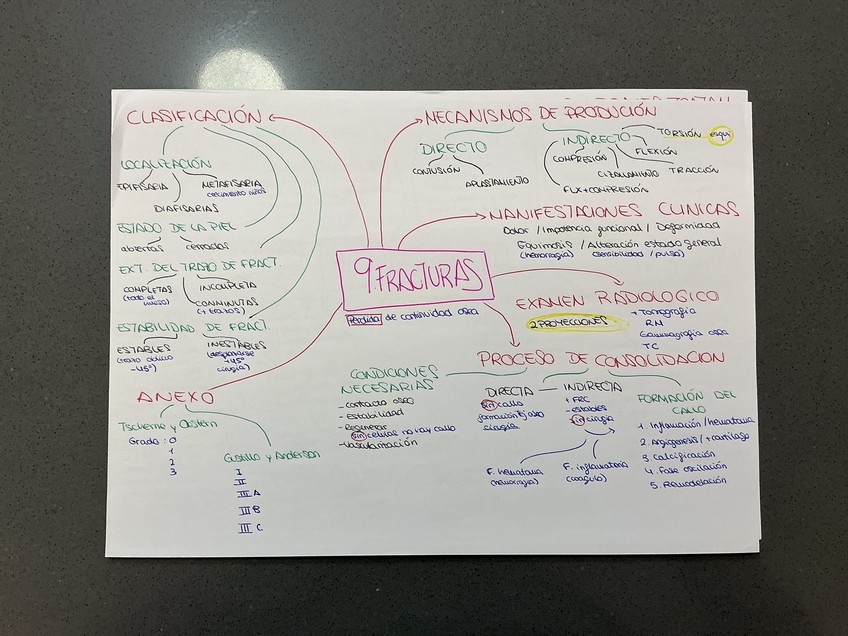 CLASIFICACIÓN
LOCALIZACIÓN
EPIFISARIA
METAFISARIA
(crecimiento niños)
DIAFISARIAS
ESTADO DE LA PIEL
abiertas cerradas
EXT. DEL TRAZO DE FRACT.
COMPLETAS
(todo el hueso)
INCOMPLETA
CONMINUTAS
(+ trazos)
ESTABILIDAD DE FRACT.
ESTABLES
(trazo oblicuo
-45º)
INESTABLES
+45º
cirugía)
ANEXO
Tscherne y Ostern
Grado: 0
1
2
3
Gustilo y Anderson
I
II
III A
III B
III C
9. FRACTURAS
Pérdida de continuidad osea
MECANISMOS DE PRODUCIÓN
DIRECTO
CONTUSIÓN
APLASTAMIENTO
INDIRECTO
COMPRESIÓN
FLX+COMPRESIÓN
CIZALLAMIENTO
TRACCIÓN
FLEXIÓN
TORSIÓN esquí
MANIFESTACIONES CLINICAS
Dolor / Impotencia funcional / Deformidad
Equimosis / Alteración estado general
(hemorragia) (sensibilidad / pulso)
EXAMEN RADIOLOGICO
2 PROYECCIONES
+ Tomografia
RM
Gammagrafia osea
TC
PROCESO DE CONSOLIDACION
CONDICIONES
NECESARIAS
- contacto oseo
- estabilidad
- Regenerar
sin celulas no hay callo
- vascularización
DIRECTA
sin callo
formación tj oseo
cirugía
INDIRECTA
+ FRC
- estables
sin cirugía
F. hematoma
(hemorragia)
F. inflamatoria
(coagulo)
FORMACIÓN DEL
CALLO
1. Inflamación / hematoma
2. Angiogenesis / + cartilago
3. Calcificación
4. Fase osificación
5. Remodelación